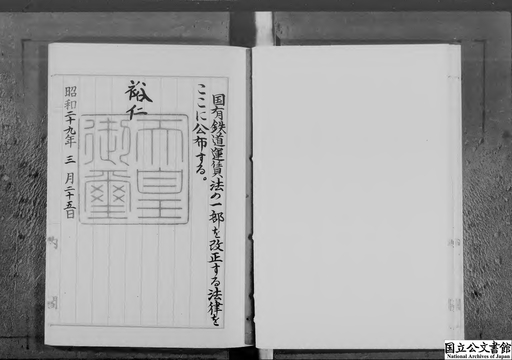 国有鉄道運賃法の一部を改正する法律を
ここに公布する。
裕仁
天皇
御璽
昭和二十九年三月二十五日
国立公文書館
National Archives of Japan